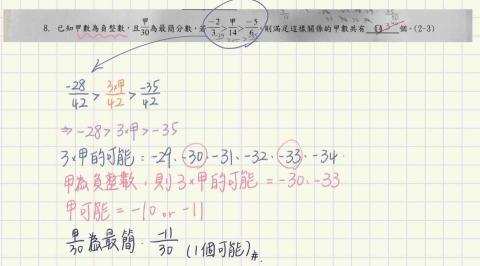 8. 已知甲數為負整數，且甲/30為最簡分數，若-2/3>甲/14>-5/6，則滿足這樣關係的甲數共有 個。(2-3)
-28/42 > 3×甲/42 > -35/42
⇒ -28 > 3×甲 > -35
3×甲的可能：-29、-30、-31、-32、-33、-34．
甲為負整數，則 3×甲的可能 = -30、-33
甲可能 = -10 or -11
甲/30 為最簡：-11/30 (1個可能)#